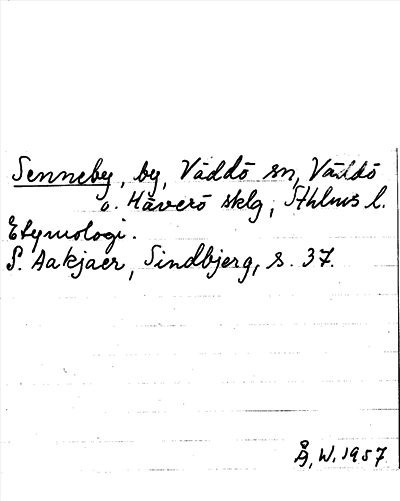 Senneby, by, Väddö sn, Väddö
o. Häverö sklg, Sthlms l.
Etymologi.
S. Aakjaer, Sindbjerg, s. 37.
Å, W. 1957